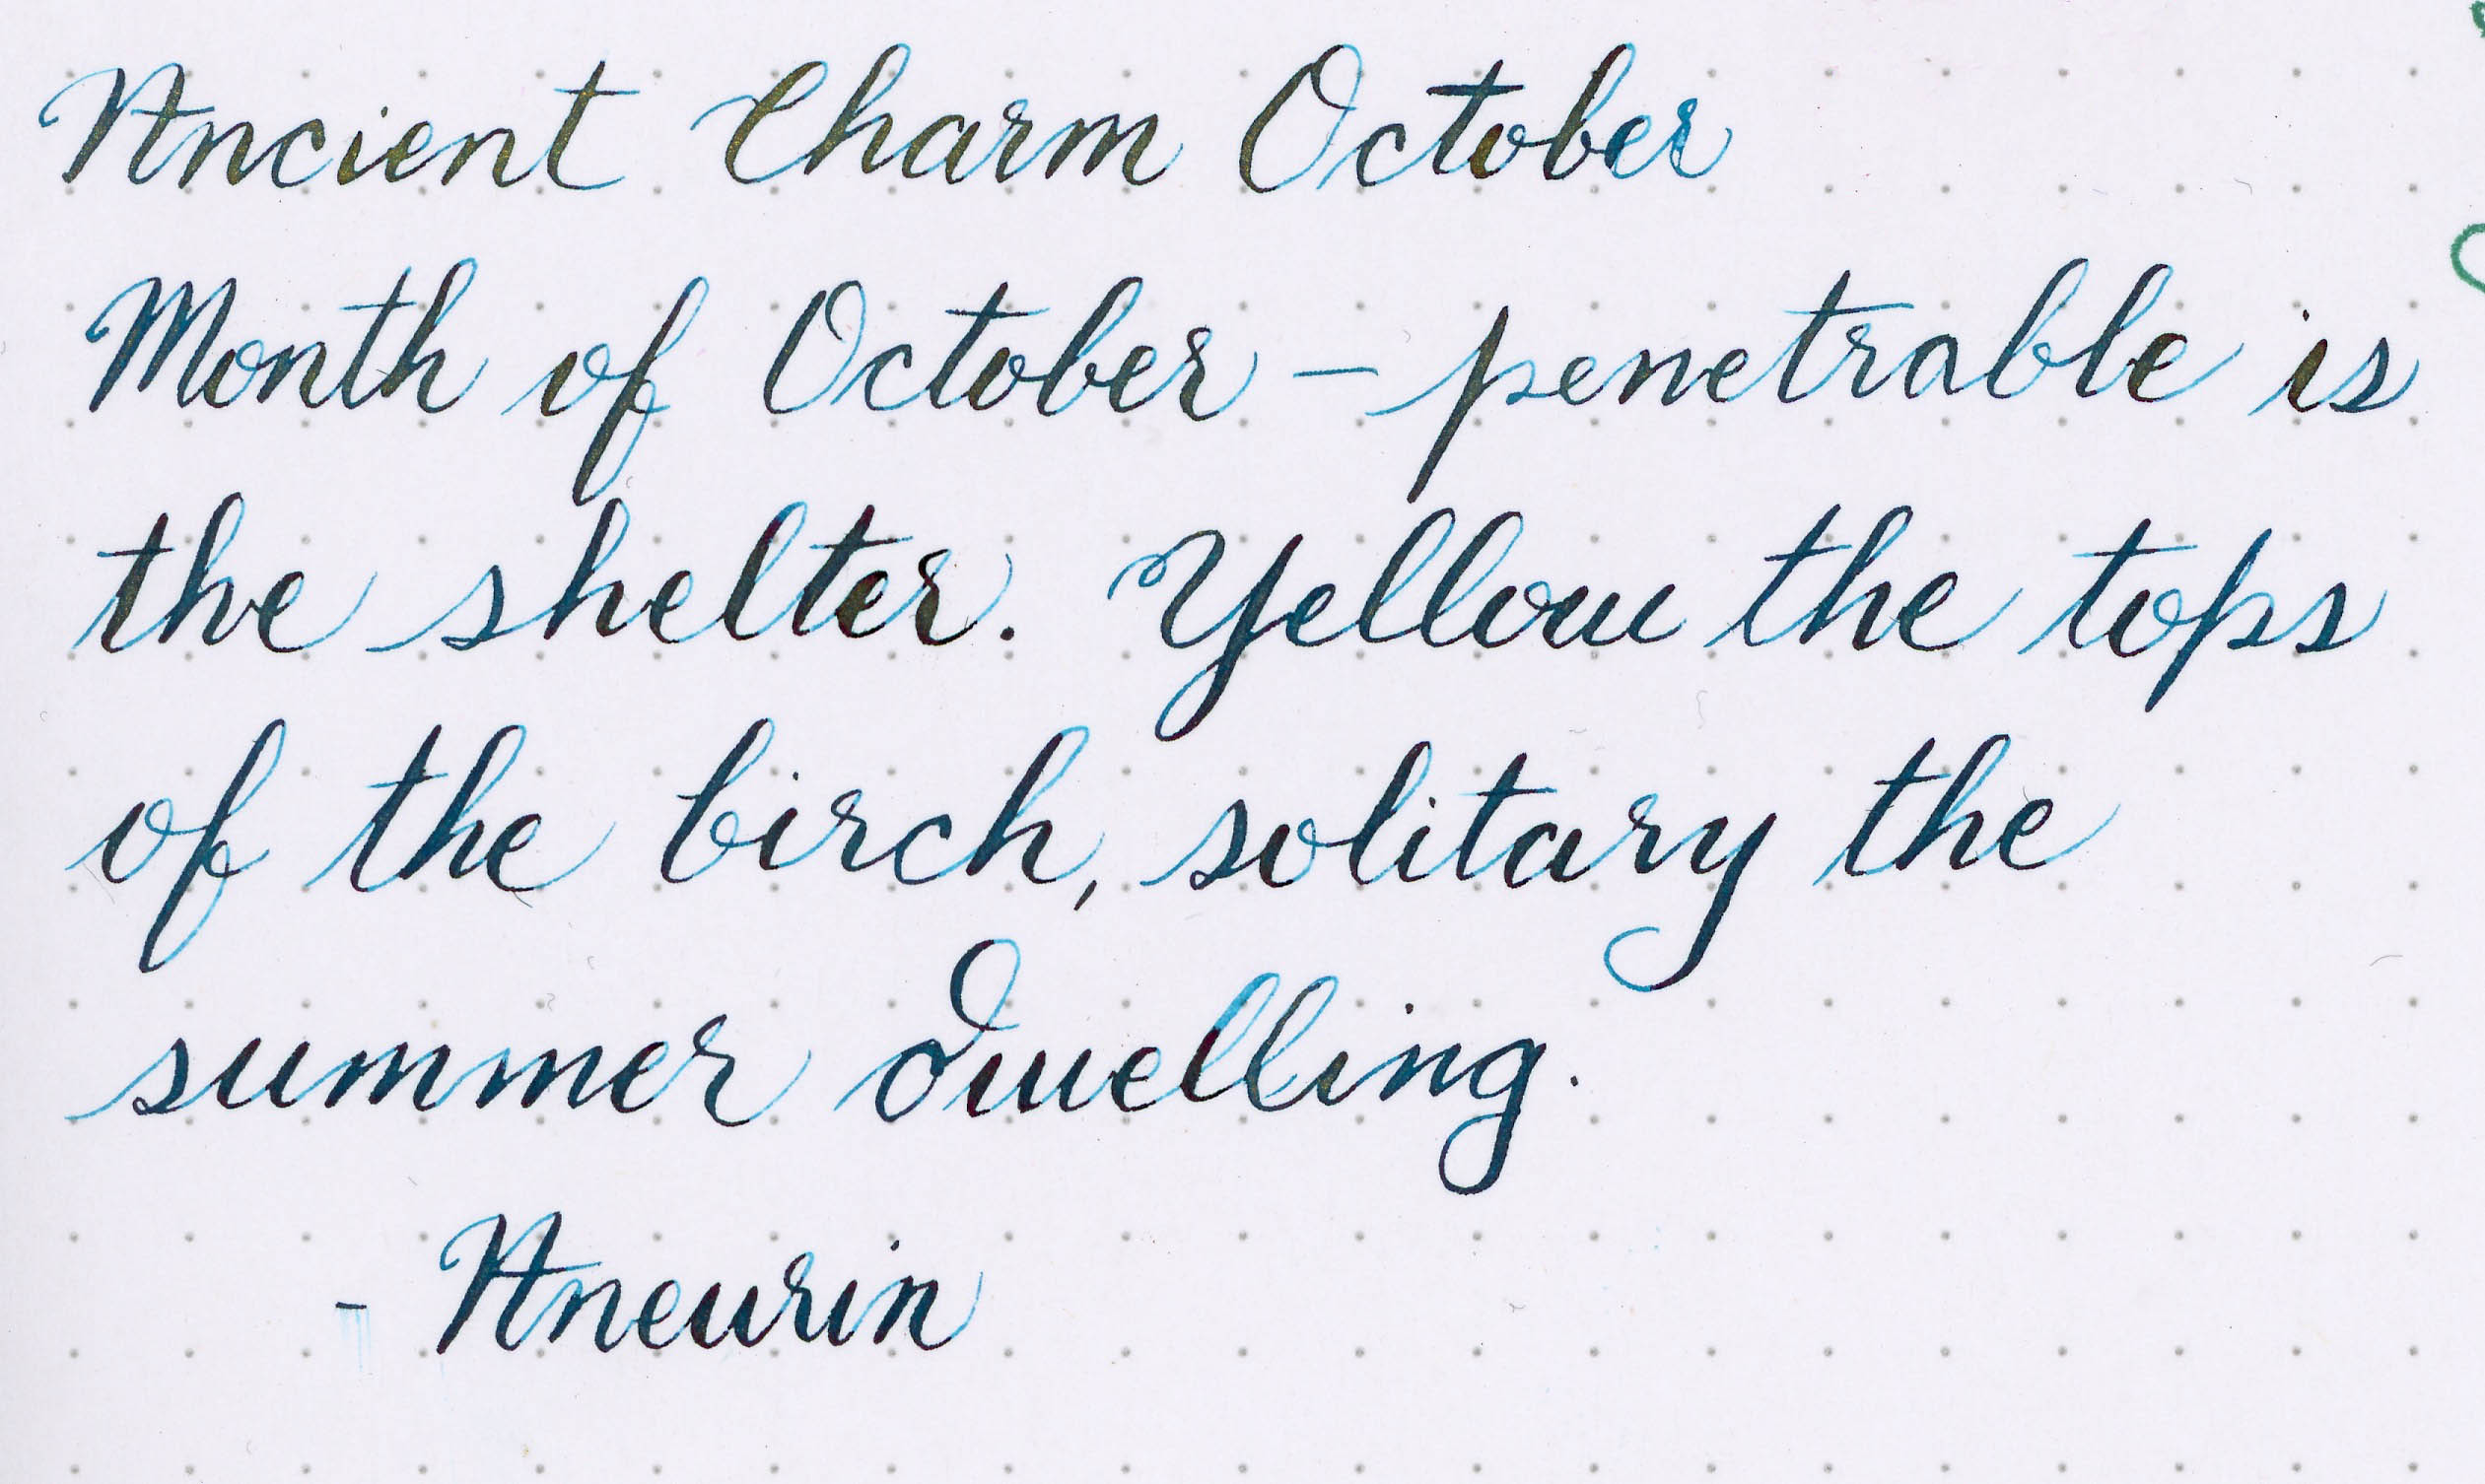 Ancient Charm October
Month of October – penetrable is
the shelter. Yellow the tops
of the birch, solitary the
summer dwelling.
- Aneurin